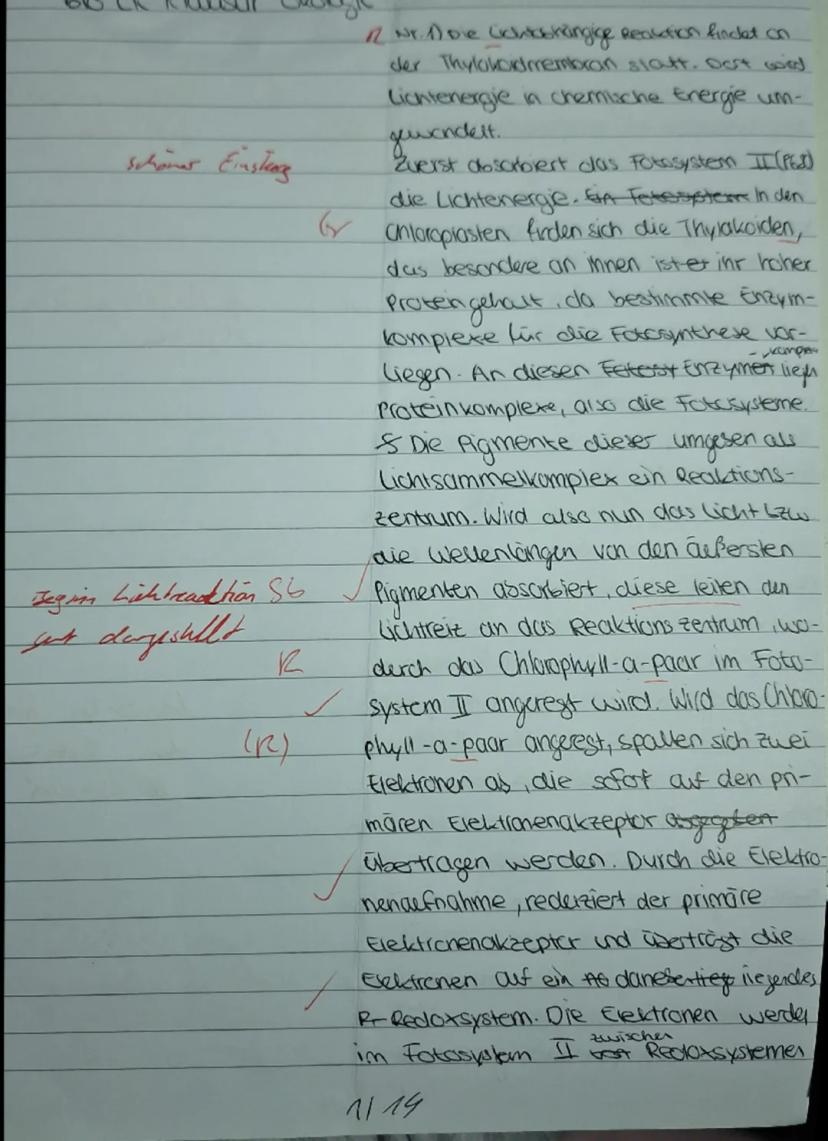 R Nr. 1) Die Lichtabhängige Reaktion findet an
der Thylakoidmembran statt. Dort wird
Lichtenergie in chemische Energie um-
gewandelt.
schöner Einstieg
Zuerst absorbiert das Fotosystem II (PSII)
die Lichtenergie. Ein Fotosystem In den
Gr
Chloroplasten finden sich die Thylakoiden,
das besondere an ihnen ist er ihr hoher
Proteingehalt, da bestimmte Enzym-
komplexe für die Fotosynthese vor-
liegen. An diesen Enzymen liegen
Proteinkomplexe, also die Fotosysteme.
Die Pigmente dieser umgeben als
Lichtsammelkomplex ein Reaktions-
zentrum. Wird also nun das Licht bzw
die Wellenlängen von den äußersten
Beginn Lichtreaktion S6
Pigmenten absorbiert, diese leiten den
gut dargestellt
Lichtreiz an das Reaktionszentrum, wo-
R
durch das Chlorophyll-a-paar im Foto-
system II angeregt wird. Wird das Chloro-
(R)
phyll-a-paar angeregt, spalten sich zwei
Elektronen ab, die sofort auf den pri-
mären Elektronenakzeptor abgegeben
übertragen werden. Durch die Elektro-
nenaufnahme, reduziert der primäre
Elektronenakzeptor und überträgt die
Elektronen auf ein liegendes
R- Redoxsystem. Die Elektronen werden
im Fotosystem II zwischen Redoxsystemen
1/14